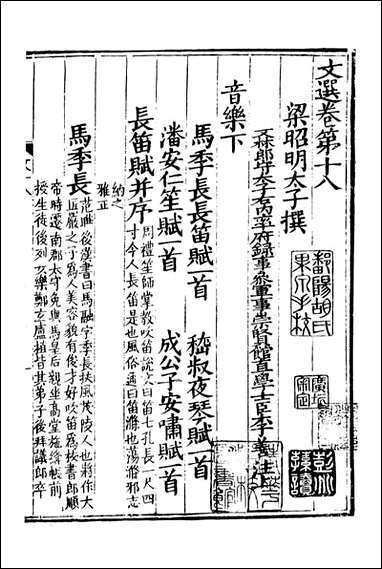 文選卷第十八
梁昭明太子撰
文林郎守太子右內率府錄事參軍事崇賢館直學士臣李善注上
音樂下
馬季長長笛賦一首　嵇叔夜琴賦一首
潘安仁笙賦一首　成公子安嘯賦一首
長笛賦并序
周禮笙師掌教吹笛說文曰笛七孔長一尺四
寸今人長笛是也風俗通曰笛滌也蕩滌邪志
納之
雅正
馬季長
范曄後漢書曰馬融字季長扶風茂陵人也將作大
匠嚴之子爲人美容貌有俊才好吹笛爲校書郎順
帝時遷南郡太守免與馬皇后親坐高堂施絳帳前
授生徒後列女樂鄭玄盧植皆其弟子後拜議郎卒
鄱陽胡氏